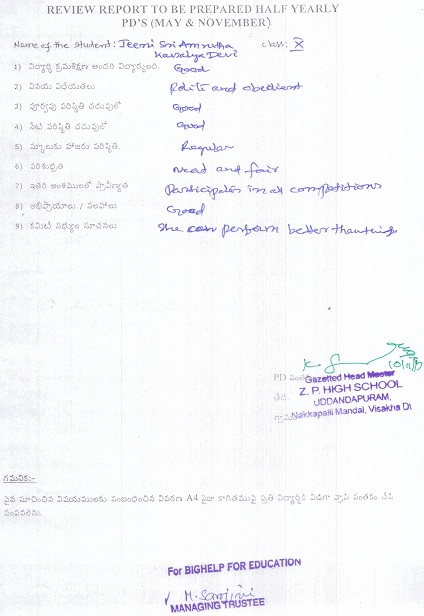 REVIEW REPORT TO BE PREPARED HALF YEARLY
PD'S (MAY & NOVEMBER)
Name of the student: Jeemi Sri Amrutha class: X
Kousalya Devi
1) విద్యార్థి క్రమశిక్షణ అందరి విద్యార్థులంది. Good
2) వినయ విధేయతలు Polite and obedient
3) పూర్వపు పరిస్థితి చదువులో Good
4) నేటి పరిస్థితి చదువులో Good
5) స్కూలుకు హాజరు పరిస్థితి. Regular
6) పరిశుభ్రత Nead and fair
7) ఇతర అంశములలో ప్రావీణ్యత Participates in all competitions
8) అభిప్రాయాలు / సలహాలు Good
9) కమిటి సభ్యుల సూచనలు She can perform better than this
PD సంత Gazetted Head Master
Z. P. HIGH SCHOOL
తేది. UDDANDAPURAM,
గ్రామ Nakkapalli Mandal, Visakha Dt
గమనిక:-
పైన సూచించిన విషయములకు సంబంధించిన వివరణ A4 సైజు కాగితముపై ప్రతి విద్యార్థికి విడిగా వ్రాసి సంతకం చేసి
పంపవలెను.
For BIGHELP FOR EDUCATION
M. Sarojini
MANAGING TRUSTEE